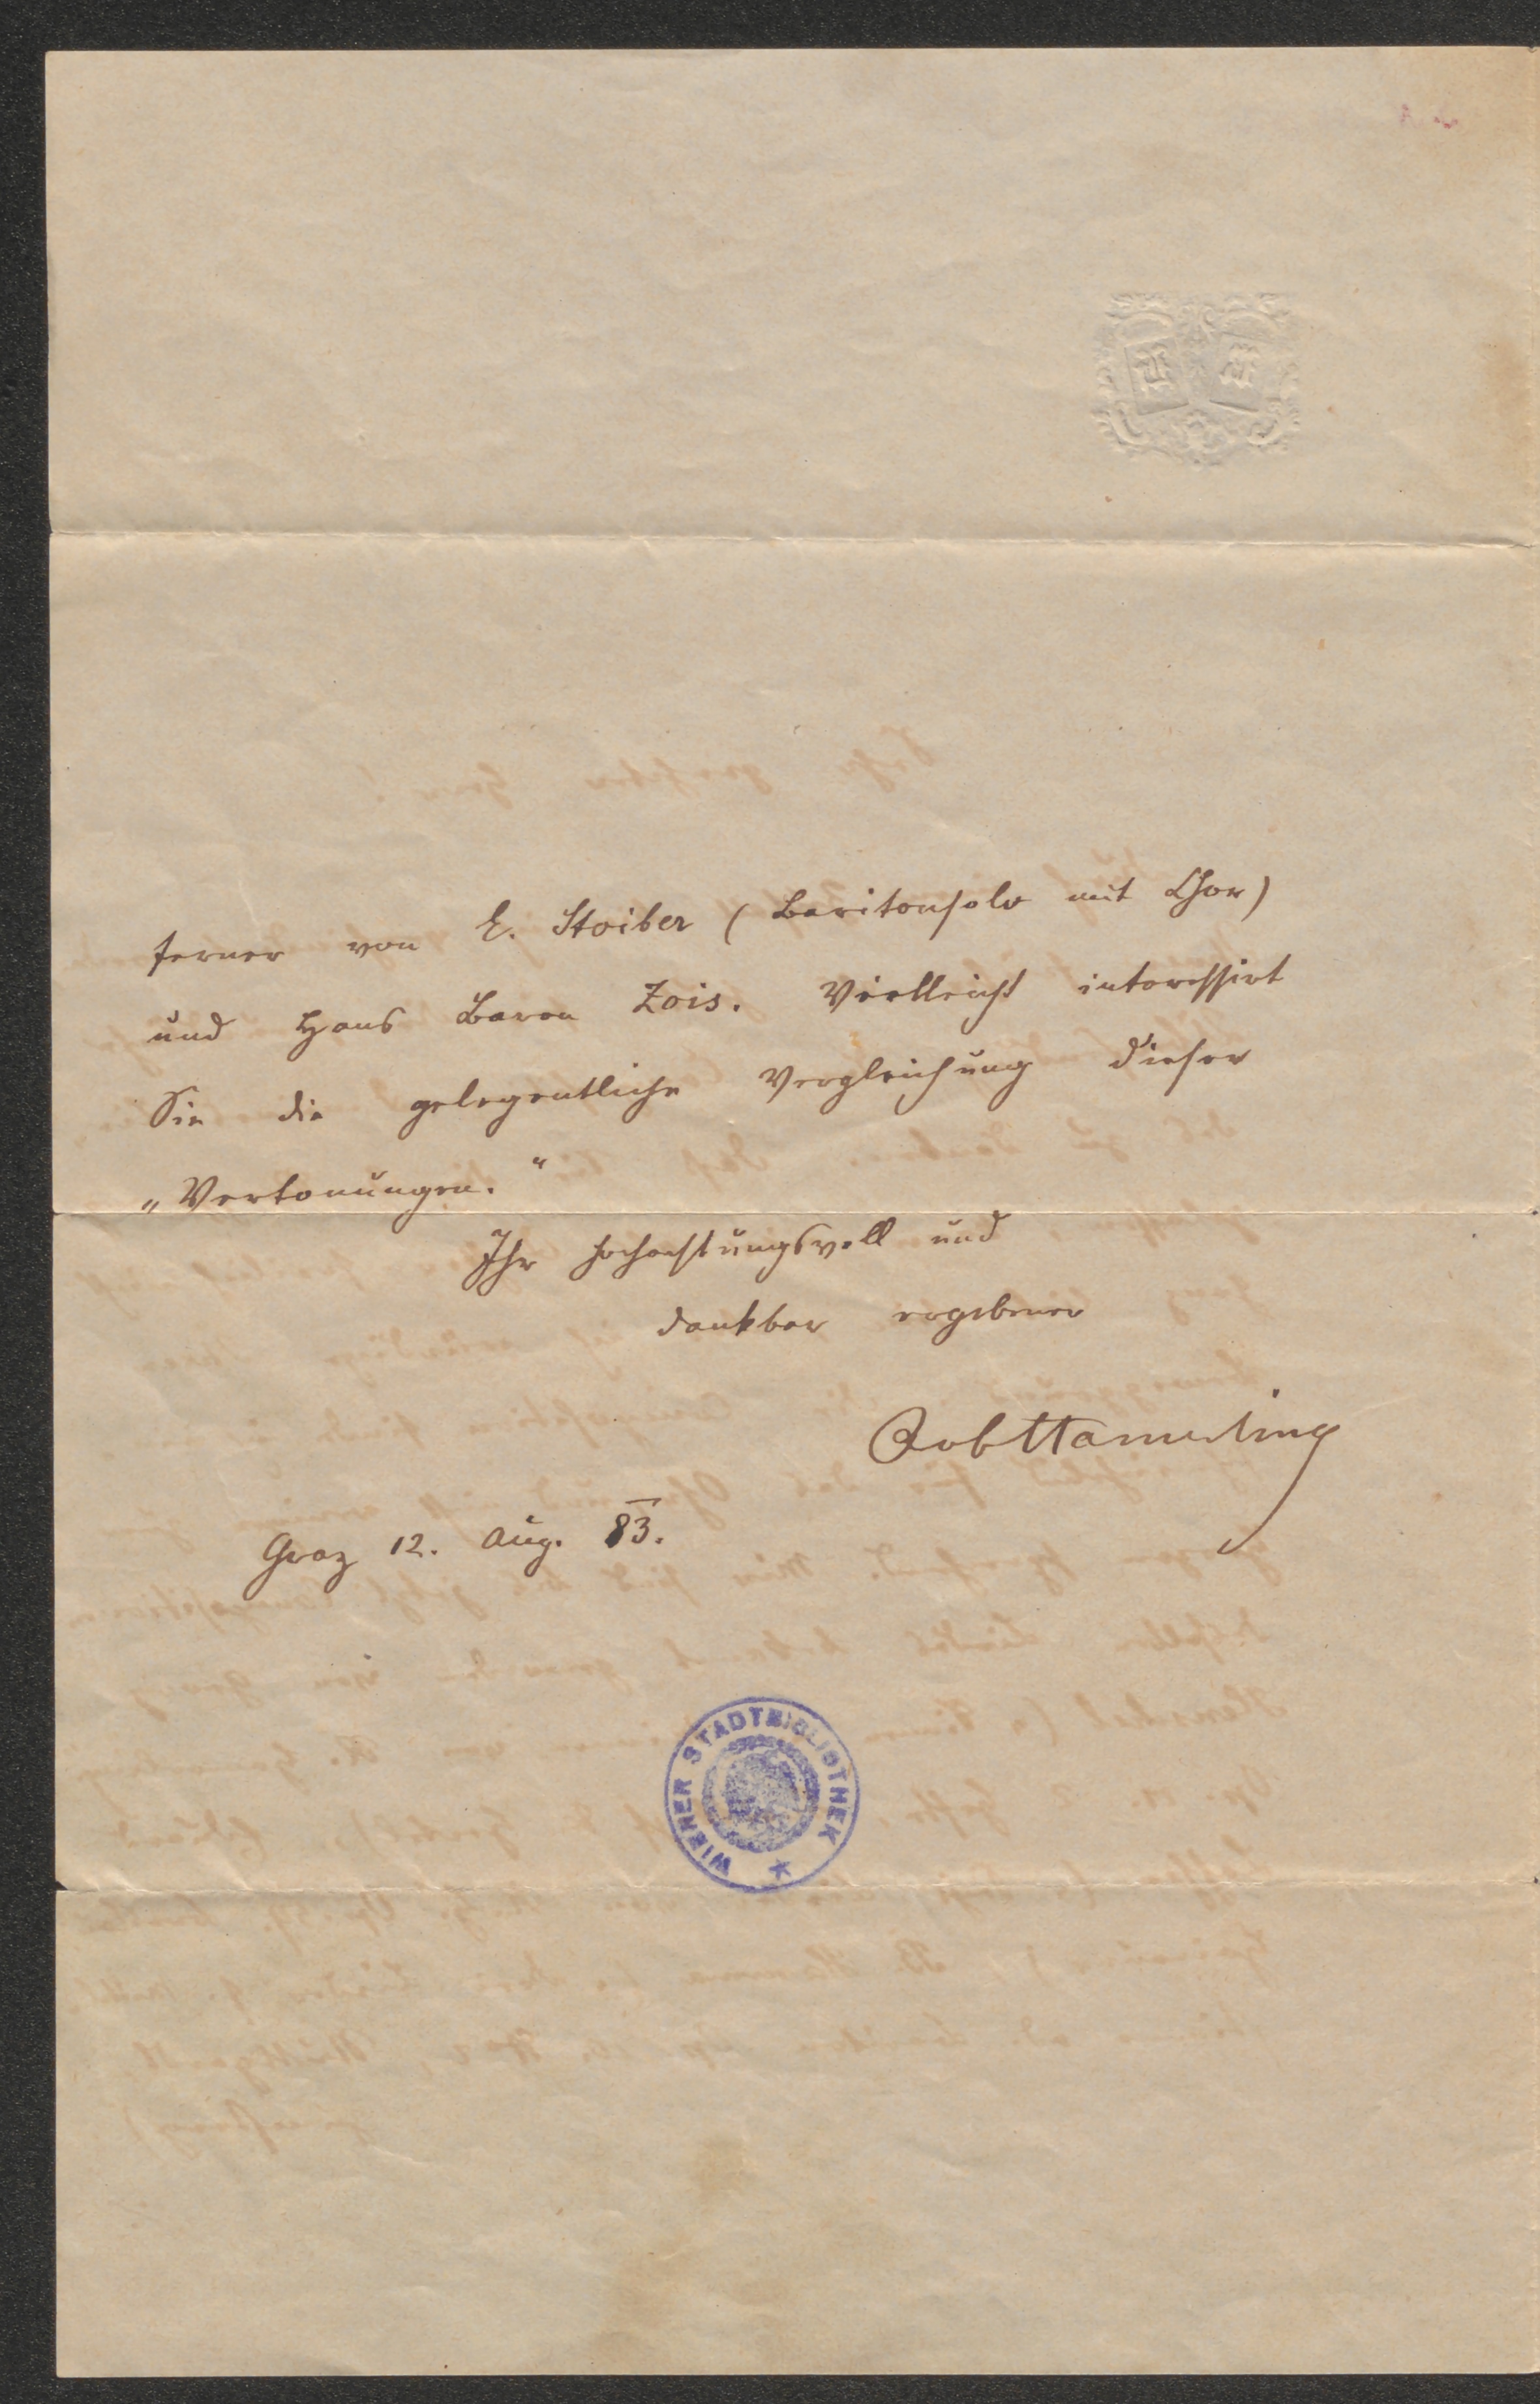 ferner von E. Stoiber (Baritonsolo mit Chor)
und Hans Baron Zois. Vielleicht interessirt
Sie die gelegentliche Vergleichung dieser
„Vertonungen."
Ihr hochachtungsvoll und
dankbar ergebener
RobHamerling
Graz 12. Aug. 83.
WIENER STADTBIBLIOTHEK